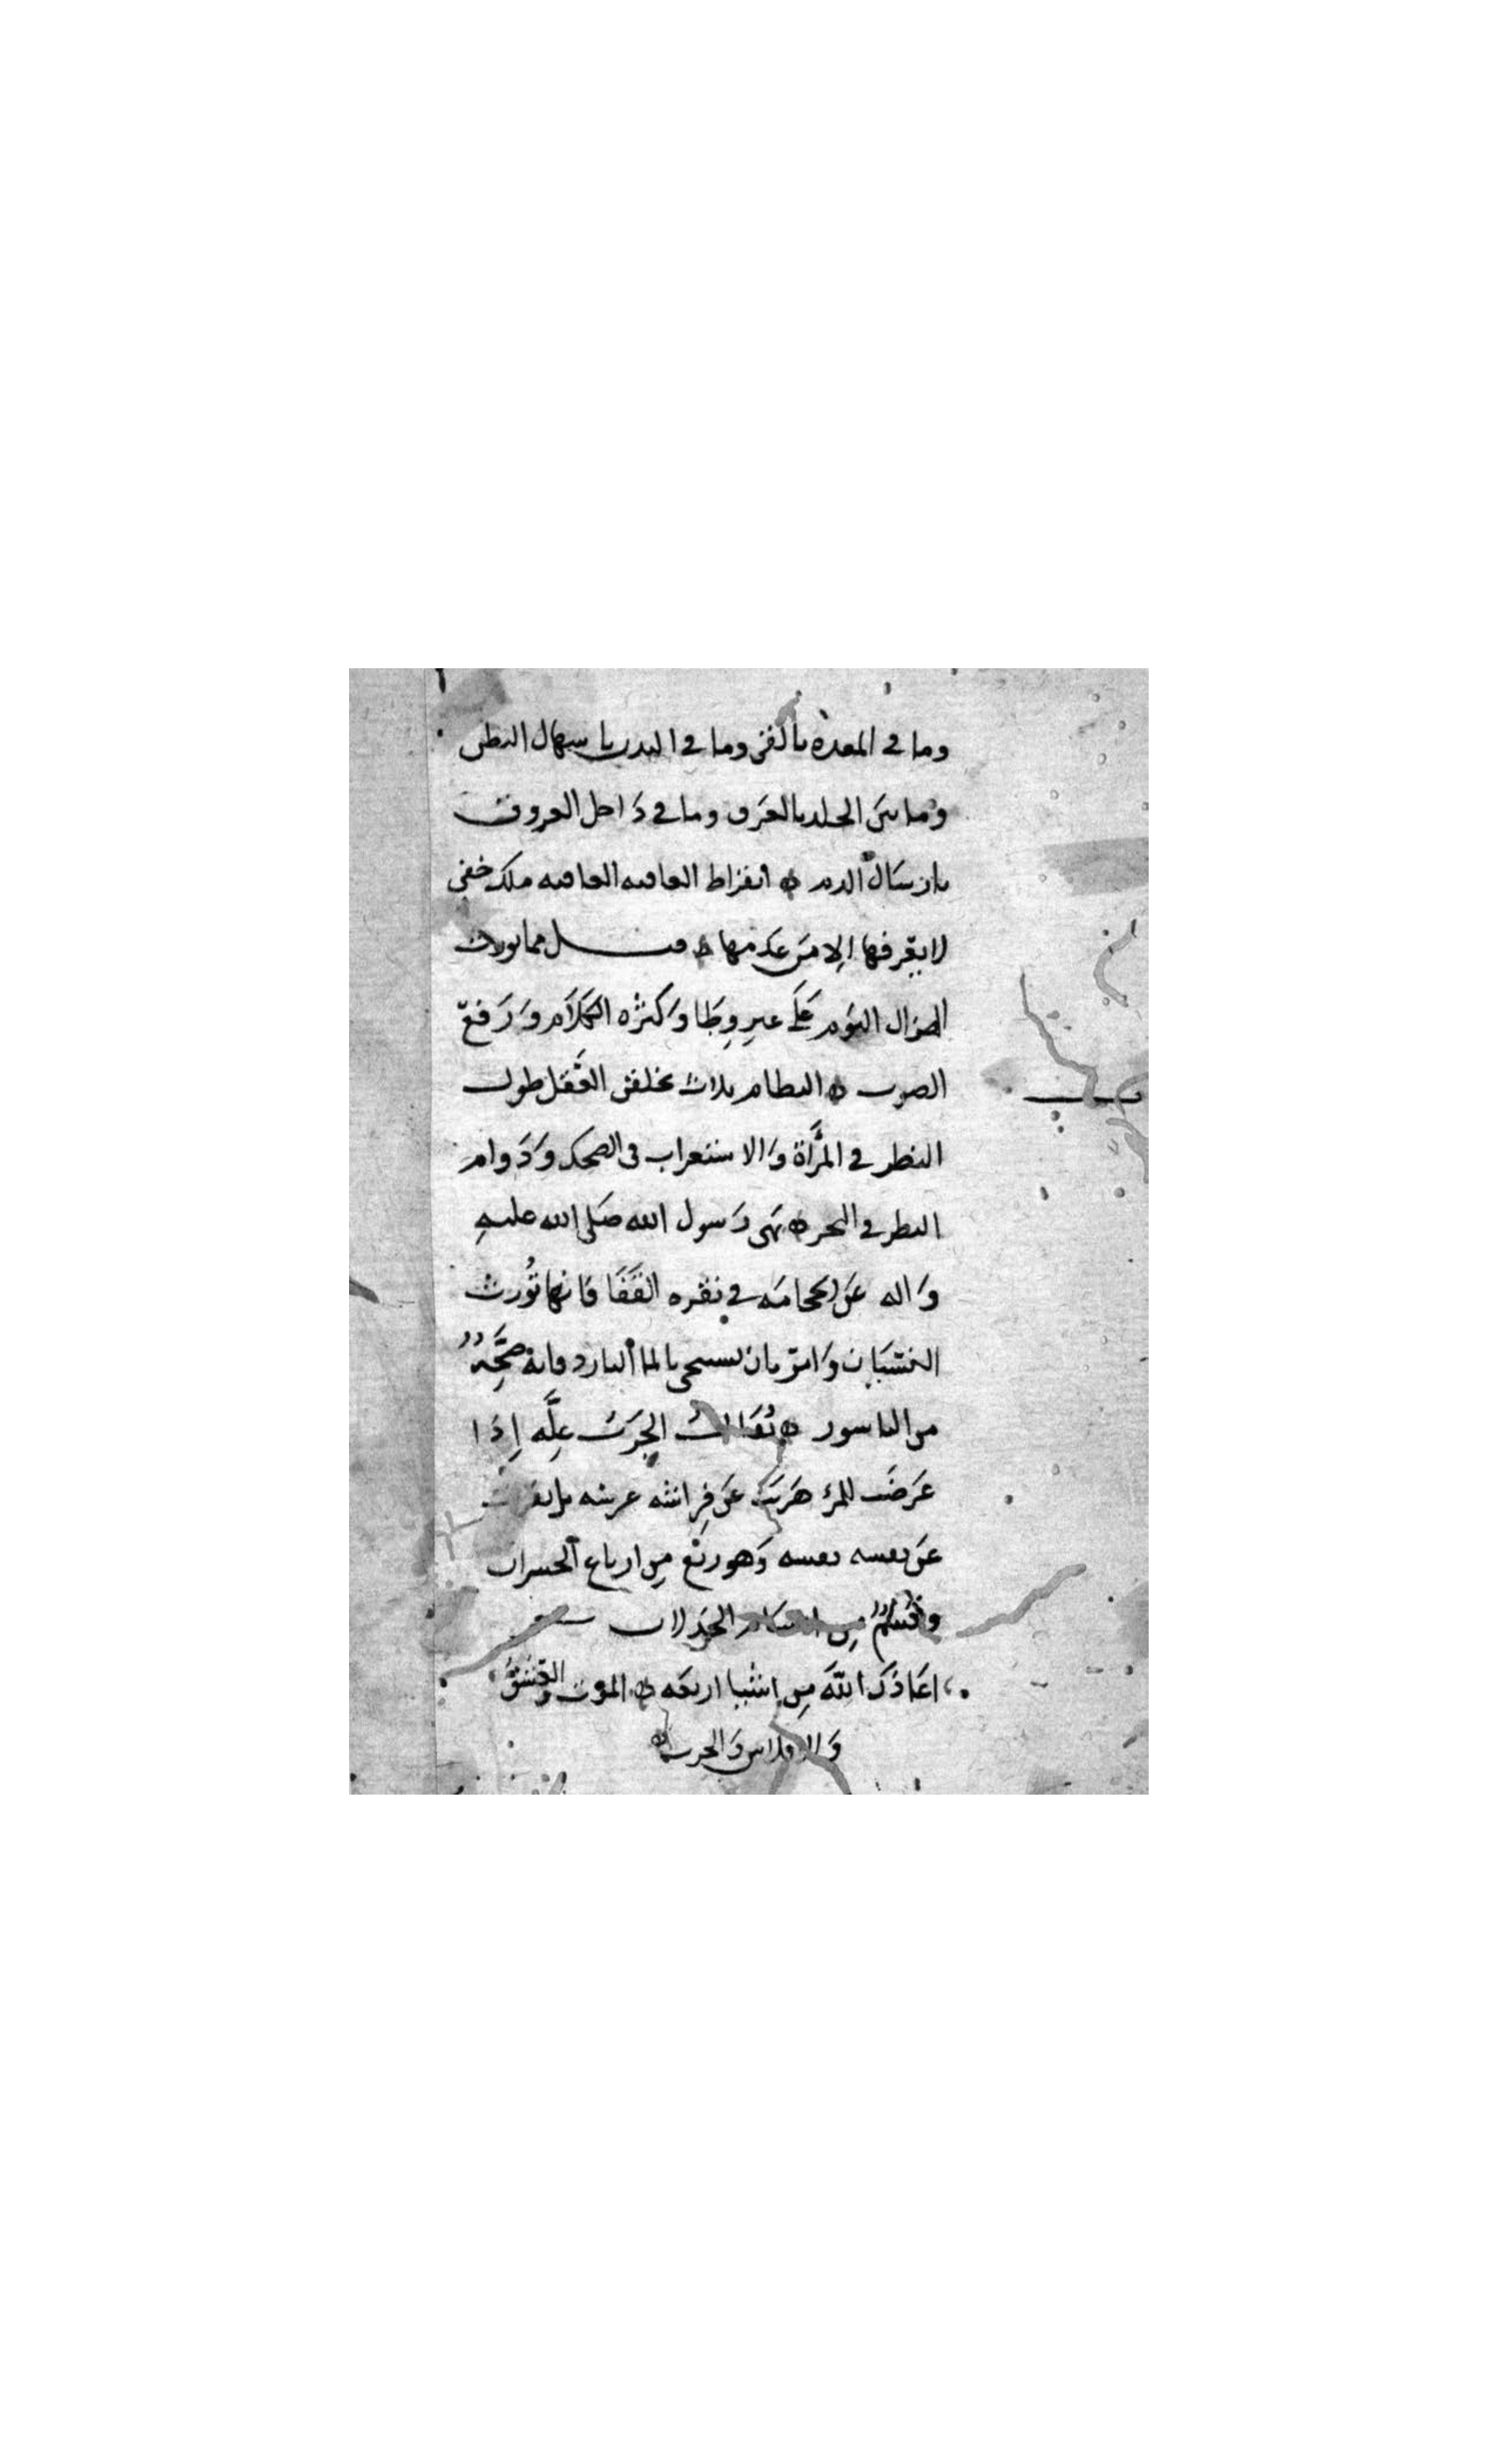 وما في المعده بالقئ وما في البدن باسهال البطن
وما بين الجلد بالعرق وما في داخل العروق
بارسال الدم ابقراط العافيه العافيه ملك خفي
لا يعرفها الا من عدمها قيل مما يورث
الهزال النوم على غير وطا وكثره الكلام ورفع
الصوت النظام ثلاث تخلق العقل طول
النظر في المرأة والاستغراب في الضحك ودوام
النظر في البحر نهى رسول الله صلى الله عليه
واله عن الحجامه في نقره القفا فانها تورث
النسيان وامر بان يستنجى بالما البارد فانه صحة
من الباسور ثقال الجرب علة إذا
عرضت للمرء هربت عن فراشه عرسه بل
عن نفسه نفسه وهو ربع من ارباع الخسران
وقسم من اقسام الخذلان
اعاذك الله من اشيا اربعه الموت والعشق
والافلاس والجرب